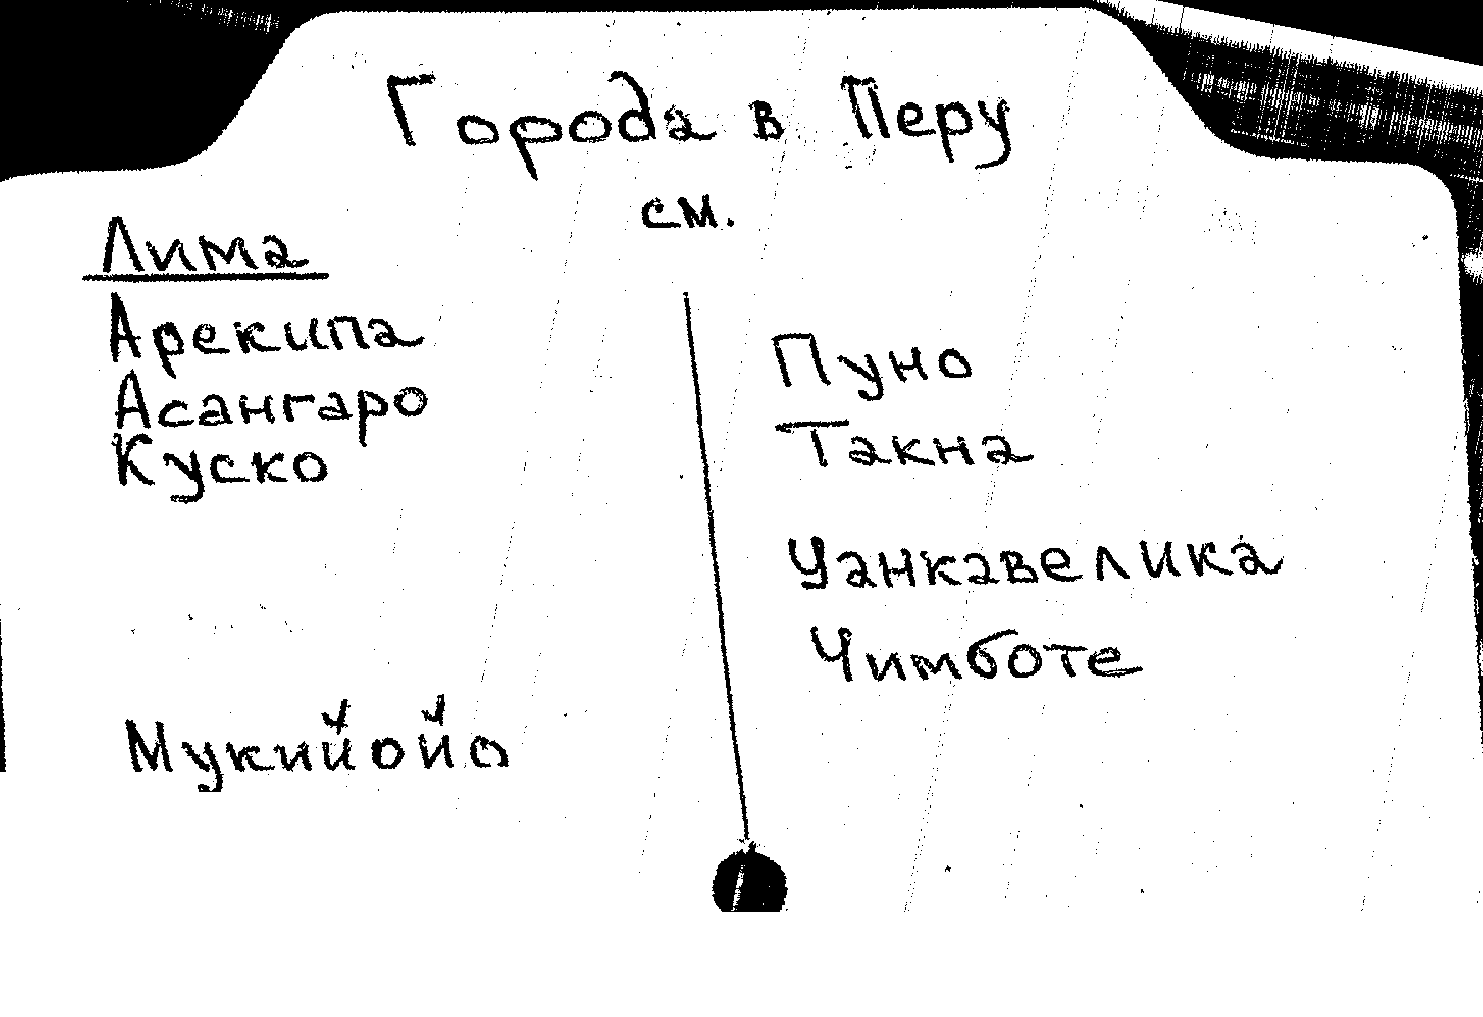 Города в Перу
см.
Лима
Арекипа
Асангаро
Куско
Мукийойо
Пуно
Такна
Уанкавелика
Чимботе